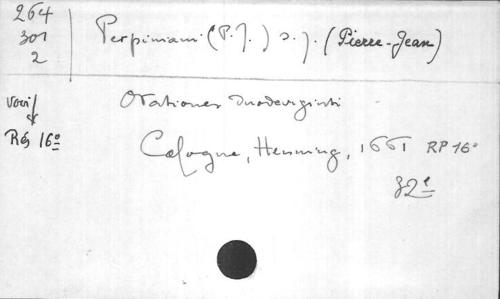 264
301
2
Perpiniani (P.J.) s.j. (Pierre-Jean)
voir
Rés 16º
Orationes duodeviginti
Cologne, Henning, 1661 RP 16º